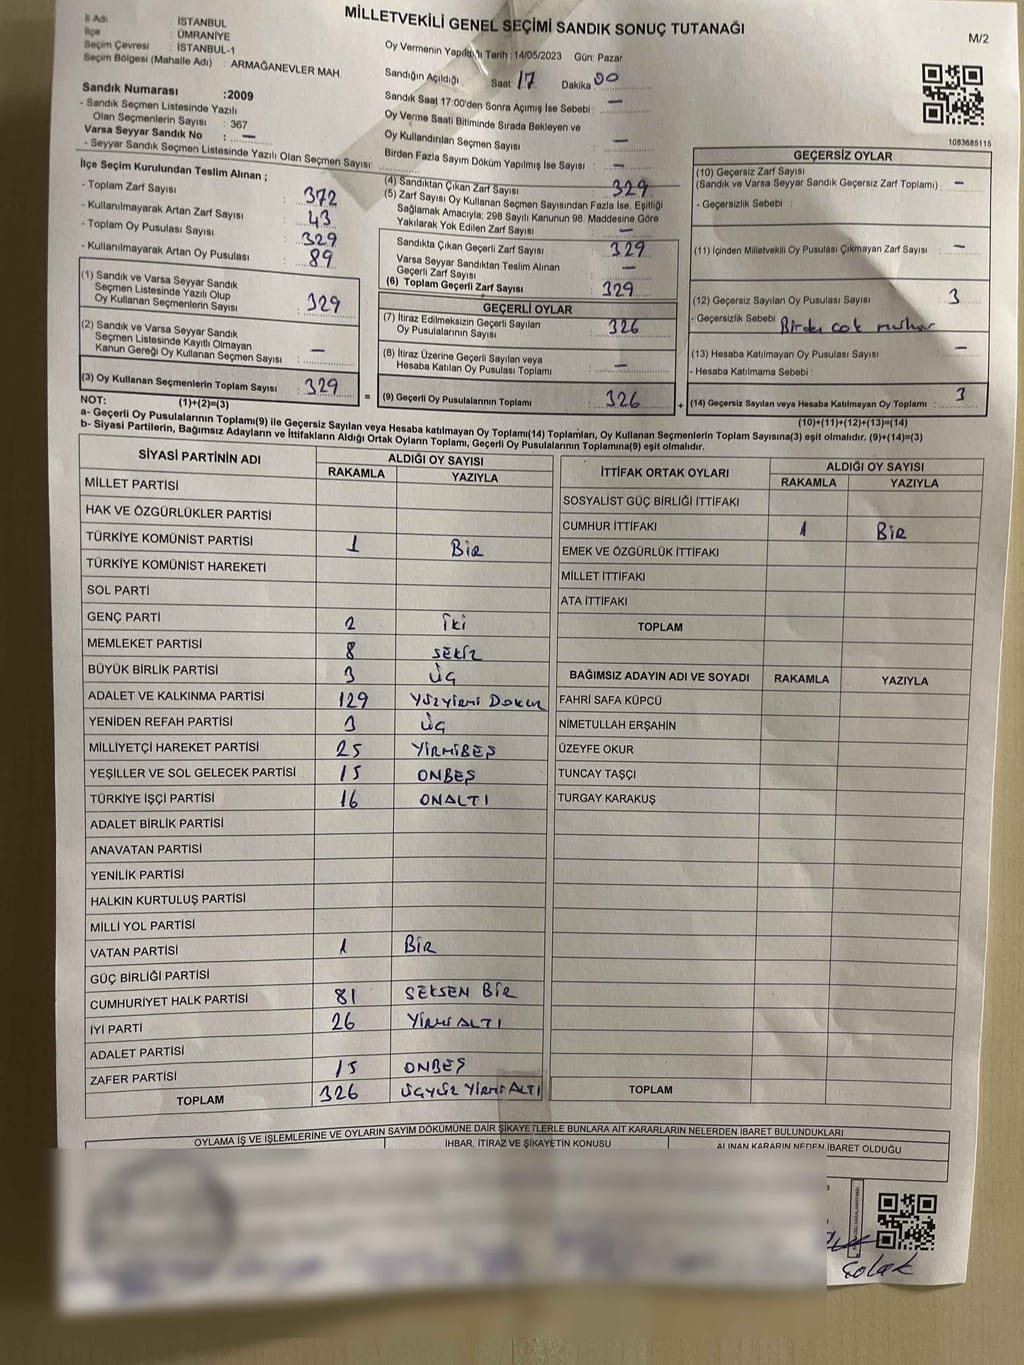 MİLLETVEKİLİ GENEL SEÇİMİ SANDIK SONUÇ TUTANAĞI
M/2
İl Adı : İSTANBUL
İlçe : ÜMRANİYE
Seçim Çevresi : İSTANBUL-1
Seçim Bölgesi (Mahalle Adı) : ARMAĞANEVLER MAH.
Sandık Numarası :2009
- Sandık Seçmen Listesinde Yazılı
Olan Seçmenlerin Sayısı : 367
Varsa Seyyar Sandık No : —
- Seyyar Sandık Seçmen Listesinde Yazılı Olan Seçmen Sayısı:
Oy Vermenin Yapıldığı Tarih :14/05/2023 Gün: Pazar
Sandığın Açıldığı Saat: 17 Dakika 00
Sandık Saat 17:00'den Sonra Açımış İse Sebebi : —
Oy Verme Saati Bitiminde Sırada Bekleyen ve
Oy Kullandırılan Seçmen Sayısı : —
Birden Fazla Sayım Döküm Yapılmış İse Sayısı : —
1083685115
İlçe Seçim Kurulundan Teslim Alınan ;
- Toplam Zarf Sayısı : 372
- Kullanılmayarak Artan Zarf Sayısı : 43
- Toplam Oy Pusulası Sayısı : 329
- Kullanılmayarak Artan Oy Pusulası : 89
(1) Sandık ve Varsa Seyyar Sandık
Seçmen Listesinde Yazılı Olup
Oy Kullanan Seçmenlerin Sayısı : 329
(2) Sandık ve Varsa Seyyar Sandık
Seçmen Listesinde Kayıtlı Olmayan
Kanun Gereği Oy Kullanan Seçmen Sayısı : —
(3) Oy Kullanan Seçmenlerin Toplam Sayısı : 329
(4) Sandıktan Çıkan Zarf Sayısı : 329
(5) Zarf Sayısı Oy Kullanan Seçmen Sayısından Fazla İse, Eşitliği
Sağlamak Amacıyla; 298 Sayılı Kanunun 98. Maddesine Göre
Yakılarak Yok Edilen Zarf Sayısı : —
Sandıkta Çıkan Geçerli Zarf Sayısı : 329
Varsa Seyyar Sandıktan Teslim Alınan
Geçerli Zarf Sayısı : —
(6) Toplam Geçerli Zarf Sayısı : 329
GEÇERLİ OYLAR
(7) İtiraz Edilmeksizin Geçerli Sayılan
Oy Pusulalarının Sayısı : 326
(8) İtiraz Üzerine Geçerli Sayılan veya
Hesaba Katılan Oy Pusulası Toplamı : —
= (9) Geçerli Oy Pusulalarının Toplamı : 326
GEÇERSİZ OYLAR
(10) Geçersiz Zarf Sayısı
(Sandık ve Varsa Seyyar Sandık Geçersiz Zarf Toplamı) : —
- Geçersizlik Sebebi :
(11) İçinden Milletvekili Oy Pusulası Çıkmayan Zarf Sayısı : —
(12) Geçersiz Sayılan Oy Pusulası Sayısı : 3
- Geçersizlik Sebebi Birden çok mühür
(13) Hesaba Katılmayan Oy Pusulası Sayısı : —
- Hesaba Katılmama Sebebi :
+ (14) Geçersiz Sayılan veya Hesaba Katılmayan Oy Toplamı : 3
NOT: (1)+(2)=(3)
(10)+(11)+(12)+(13)=(14)
a- Geçerli Oy Pusulalarının Toplamı(9) ile Geçersiz Sayılan veya Hesaba katılmayan Oy Toplamı(14) Toplamları, Oy Kullanan Seçmenlerin Toplam Sayısına(3) eşit olmalıdır. (9)+(14)=(3)
b- Siyasi Partilerin, Bağımsız Adayların ve İttifakların Aldığı Ortak Oyların Toplamı, Geçerli Oy Pusulalarının Toplamına(9) eşit olmalıdır.
SİYASİ PARTİNİN ADI ALDIĞI OY SAYISI
RAKAMLA YAZIYLA
MİLLET PARTİSİ
HAK VE ÖZGÜRLÜKLER PARTİSİ
TÜRKİYE KOMÜNİST PARTİSİ 1 BİR
TÜRKİYE KOMÜNİST HAREKETİ
SOL PARTİ
GENÇ PARTİ 2 İKİ
MEMLEKET PARTİSİ 8 SEKİZ
BÜYÜK BİRLİK PARTİSİ 3 ÜÇ
ADALET VE KALKINMA PARTİSİ 129 YÜZYİRMİ DOKUZ
YENİDEN REFAH PARTİSİ 3 ÜÇ
MİLLİYETÇİ HAREKET PARTİSİ 25 YİRMİBEŞ
YEŞİLLER VE SOL GELECEK PARTİSİ 15 ONBEŞ
TÜRKİYE İŞÇİ PARTİSİ 16 ONALTI
ADALET BİRLİK PARTİSİ
ANAVATAN PARTİSİ
YENİLİK PARTİSİ
HALKIN KURTULUŞ PARTİSİ
MİLLİ YOL PARTİSİ
VATAN PARTİSİ 1 BİR
GÜÇ BİRLİĞİ PARTİSİ
CUMHURİYET HALK PARTİSİ 81 SEKSEN BİR
İYİ PARTİ 26 YİRMİ ALTI
ADALET PARTİSİ
ZAFER PARTİSİ 15 ONBEŞ
TOPLAM 326 ÜÇYÜZ YİRMİ ALTI
İTTİFAK ORTAK OYLARI ALDIĞI OY SAYISI
RAKAMLA YAZIYLA
SOSYALİST GÜÇ BİRLİĞİ İTTİFAKI
CUMHUR İTTİFAKI 1 BİR
EMEK VE ÖZGÜRLÜK İTTİFAKI
MİLLET İTTİFAKI
ATA İTTİFAKI
TOPLAM
BAĞIMSIZ ADAYIN ADI VE SOYADI RAKAMLA YAZIYLA
FAHRİ SAFA KÜPCÜ
NİMETULLAH ERŞAHİN
ÜZEYFE OKUR
TUNCAY TAŞÇI
TURGAY KARAKUŞ
TOPLAM
OYLAMA İŞ VE İŞLEMLERİNE VE OYLARIN SAYIM DÖKÜMÜNE DAİR ŞİKAYETLERLE BUNLARA AİT KARARLARIN NELERDEN İBARET BULUNDUKLARI
İHBAR, İTİRAZ VE ŞİKAYETİN KONUSU ALINAN KARARIN NEDEN İBARET OLDUĞU